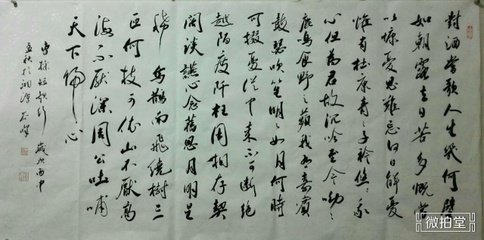 對酒當歌人生幾何譬
如朝露去日苦多慨當
以慷憂思難忘何以解憂
惟有杜康青青子衿悠悠我
心但為君故沉吟至今呦呦
鹿鳴食野之蘋我有嘉賓
鼓瑟吹笙明明如月何時
可掇憂從中來不可斷絕
越陌度阡枉用相存契
闊談讌心念舊恩月明星
稀烏鵲南飛繞樹三
匝何枝可依山不厭高
海不厭深周公吐哺
天下歸心
曹操短歌行歲次丙申
微拍堂